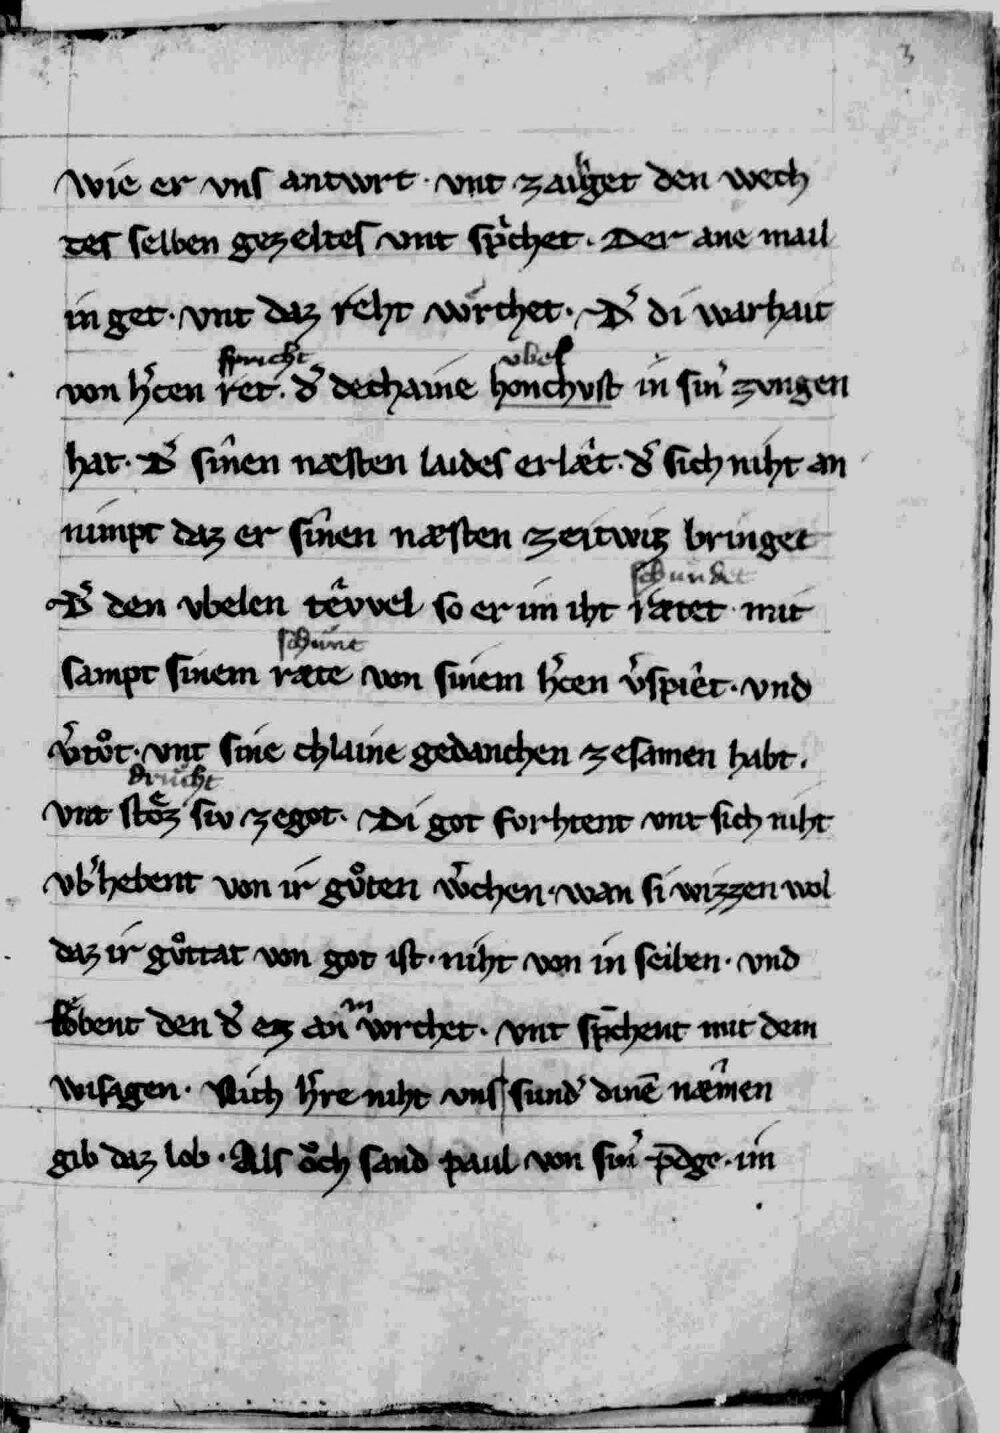 3
wie er vns antwrt · vnt zaiget den wech
tes selben gezeltes vnt sp̾chet · Der ane mail
in get · vnt daz reht wrchet · D̾ di warhait
spricht vbel
von h̾cen ret · d̾ dechaine honchvst in sin̾ zvngen
hat · D̾ sinen næsten laides erlæt · d̾ sich niht an
nimpt daz er sinen næsten zeitwiz bringet
schundet
D̾ den vbelen tevvel so er im iht rætet mit
schunt
sampt sinem ræte von sinem h̾cen v̾spiet · vnd
v̾toͤt · vnt sine chlaine gedanchen zesamen habt ·
drucht
vnt stoͤz siv zegot · Di got forhtent vnt sich niht
vb̾hebent von ir gůten w̾chen · wan si wizzen wol
daz ir gůttat von got ist · niht von in selben · vnd
in
lobent den d̾ ez an wrchet · vnt sp̄chent mit dem
wisagen · Nich h̾re niht vns sund̾ dinē næmen
gib daz lob · Als oͮch sand paul von sin̾ p̄dge · im